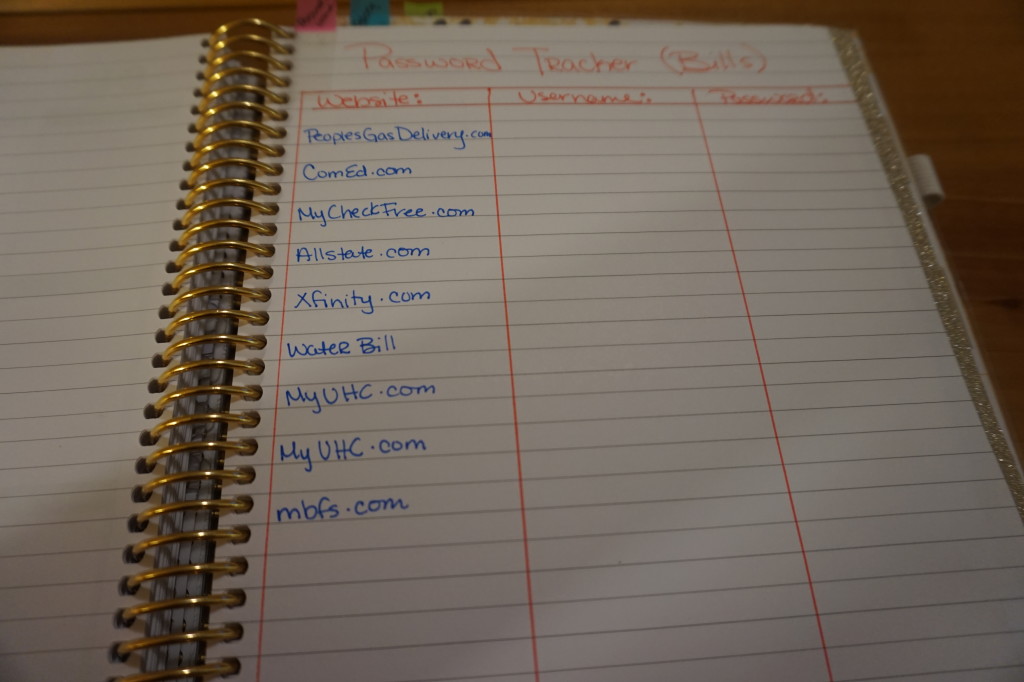 Password Tracker (Bills)
Website: Username: Password:
PeoplesGasDelivery.com
ComEd.com
MyCheckFree.com
Allstate.com
Xfinity.com
Water Bill
MyUHC.com
MyUHC.com
mbfs.com